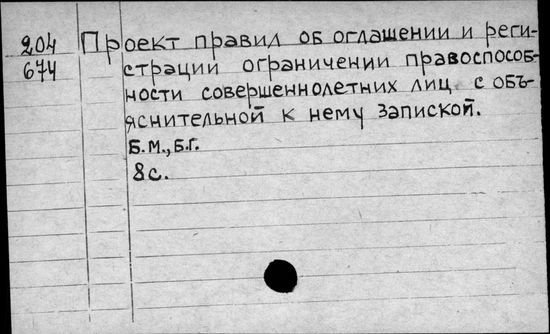 204 Проект правил об оглашении и реги-
674 страции ограничении правоспособ-
ности совершеннолетних лиц с объ-
яснительной к нему запиской.
Б.М., Б.Г.
8с.